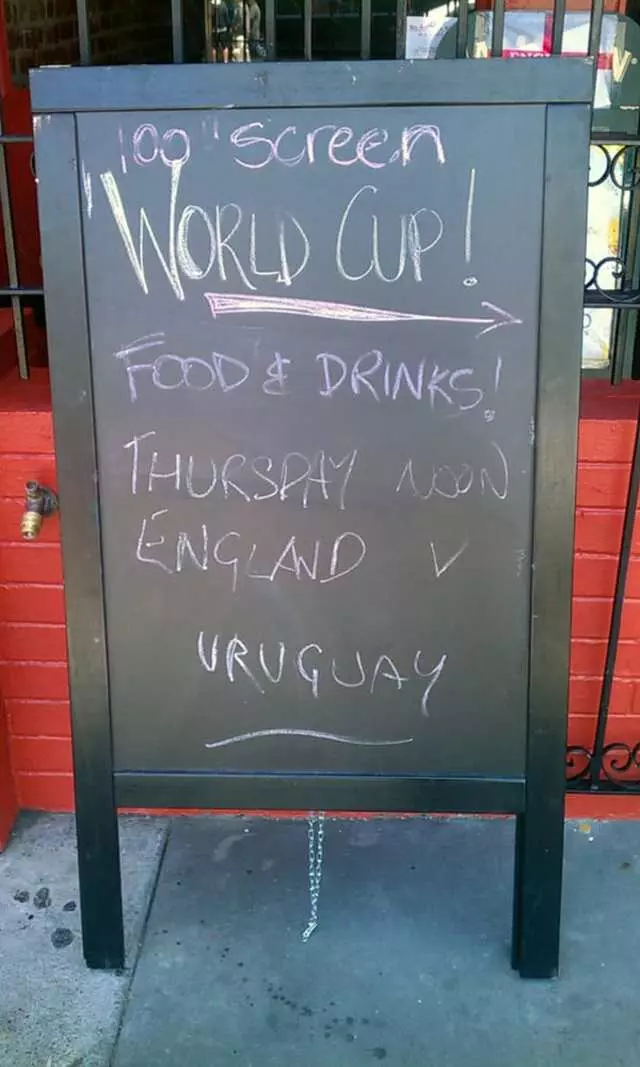 100" Screen
WORLD CUP!
FOOD & DRINKS!
THURSDAY NOON
ENGLAND V
URUGUAY